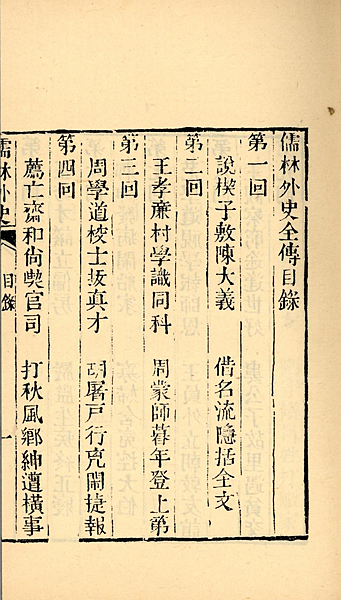 儒林外史全傳目錄
第一回
說楔子敷陳大義　借名流隱括全文
第二回
王孝廉村學識同科　周蒙師暮年登上第
第三回
周學道校士拔真才　胡屠戶行兇鬧捷報
第四回
薦亡齋和尚喫官司　打秋風鄉紳遭橫事
儒林外史　目錄　一